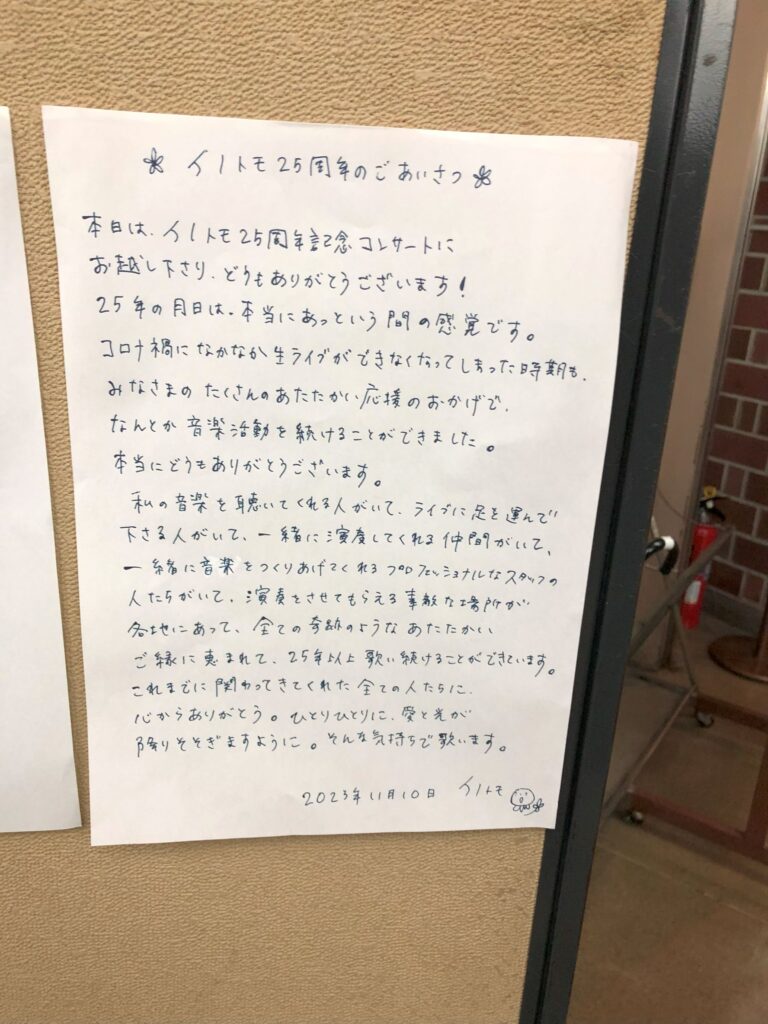 イノトモ25周年のごあいさつ
本日は、イノトモ25周年記念コンサートに
お越し下さり、どうもありがとうございます!
25年の月日は、本当にあっという間の感覚です。
コロナ禍になかなか生ライブができなくなってしまった時期も、
みなさまの たくさんのあたたかい応援のおかげで、
なんとか音楽活動を続けることができました。
本当にどうもありがとうございます。
私の音楽を聴いてくれる人がいて、ライブに足を運んで
下さる人がいて、一緒に演奏してくれる仲間がいて、
一緒に音楽をつくりあげてくれるプロフェッショナルなスタッフの
人たちがいて、演奏をさせてもらえる素敵な場所が
各地にあって、全ての奇跡のようなあたたかい
ご縁に恵まれて、25年以上歌い続けることができています。
これまでに関わってきてくれた全ての人たちに、
心からありがとう。ひとりひとりに、愛と光が
降りそそぎますように。そんな気持ちで歌います。
2023年11月10日 イノトモ